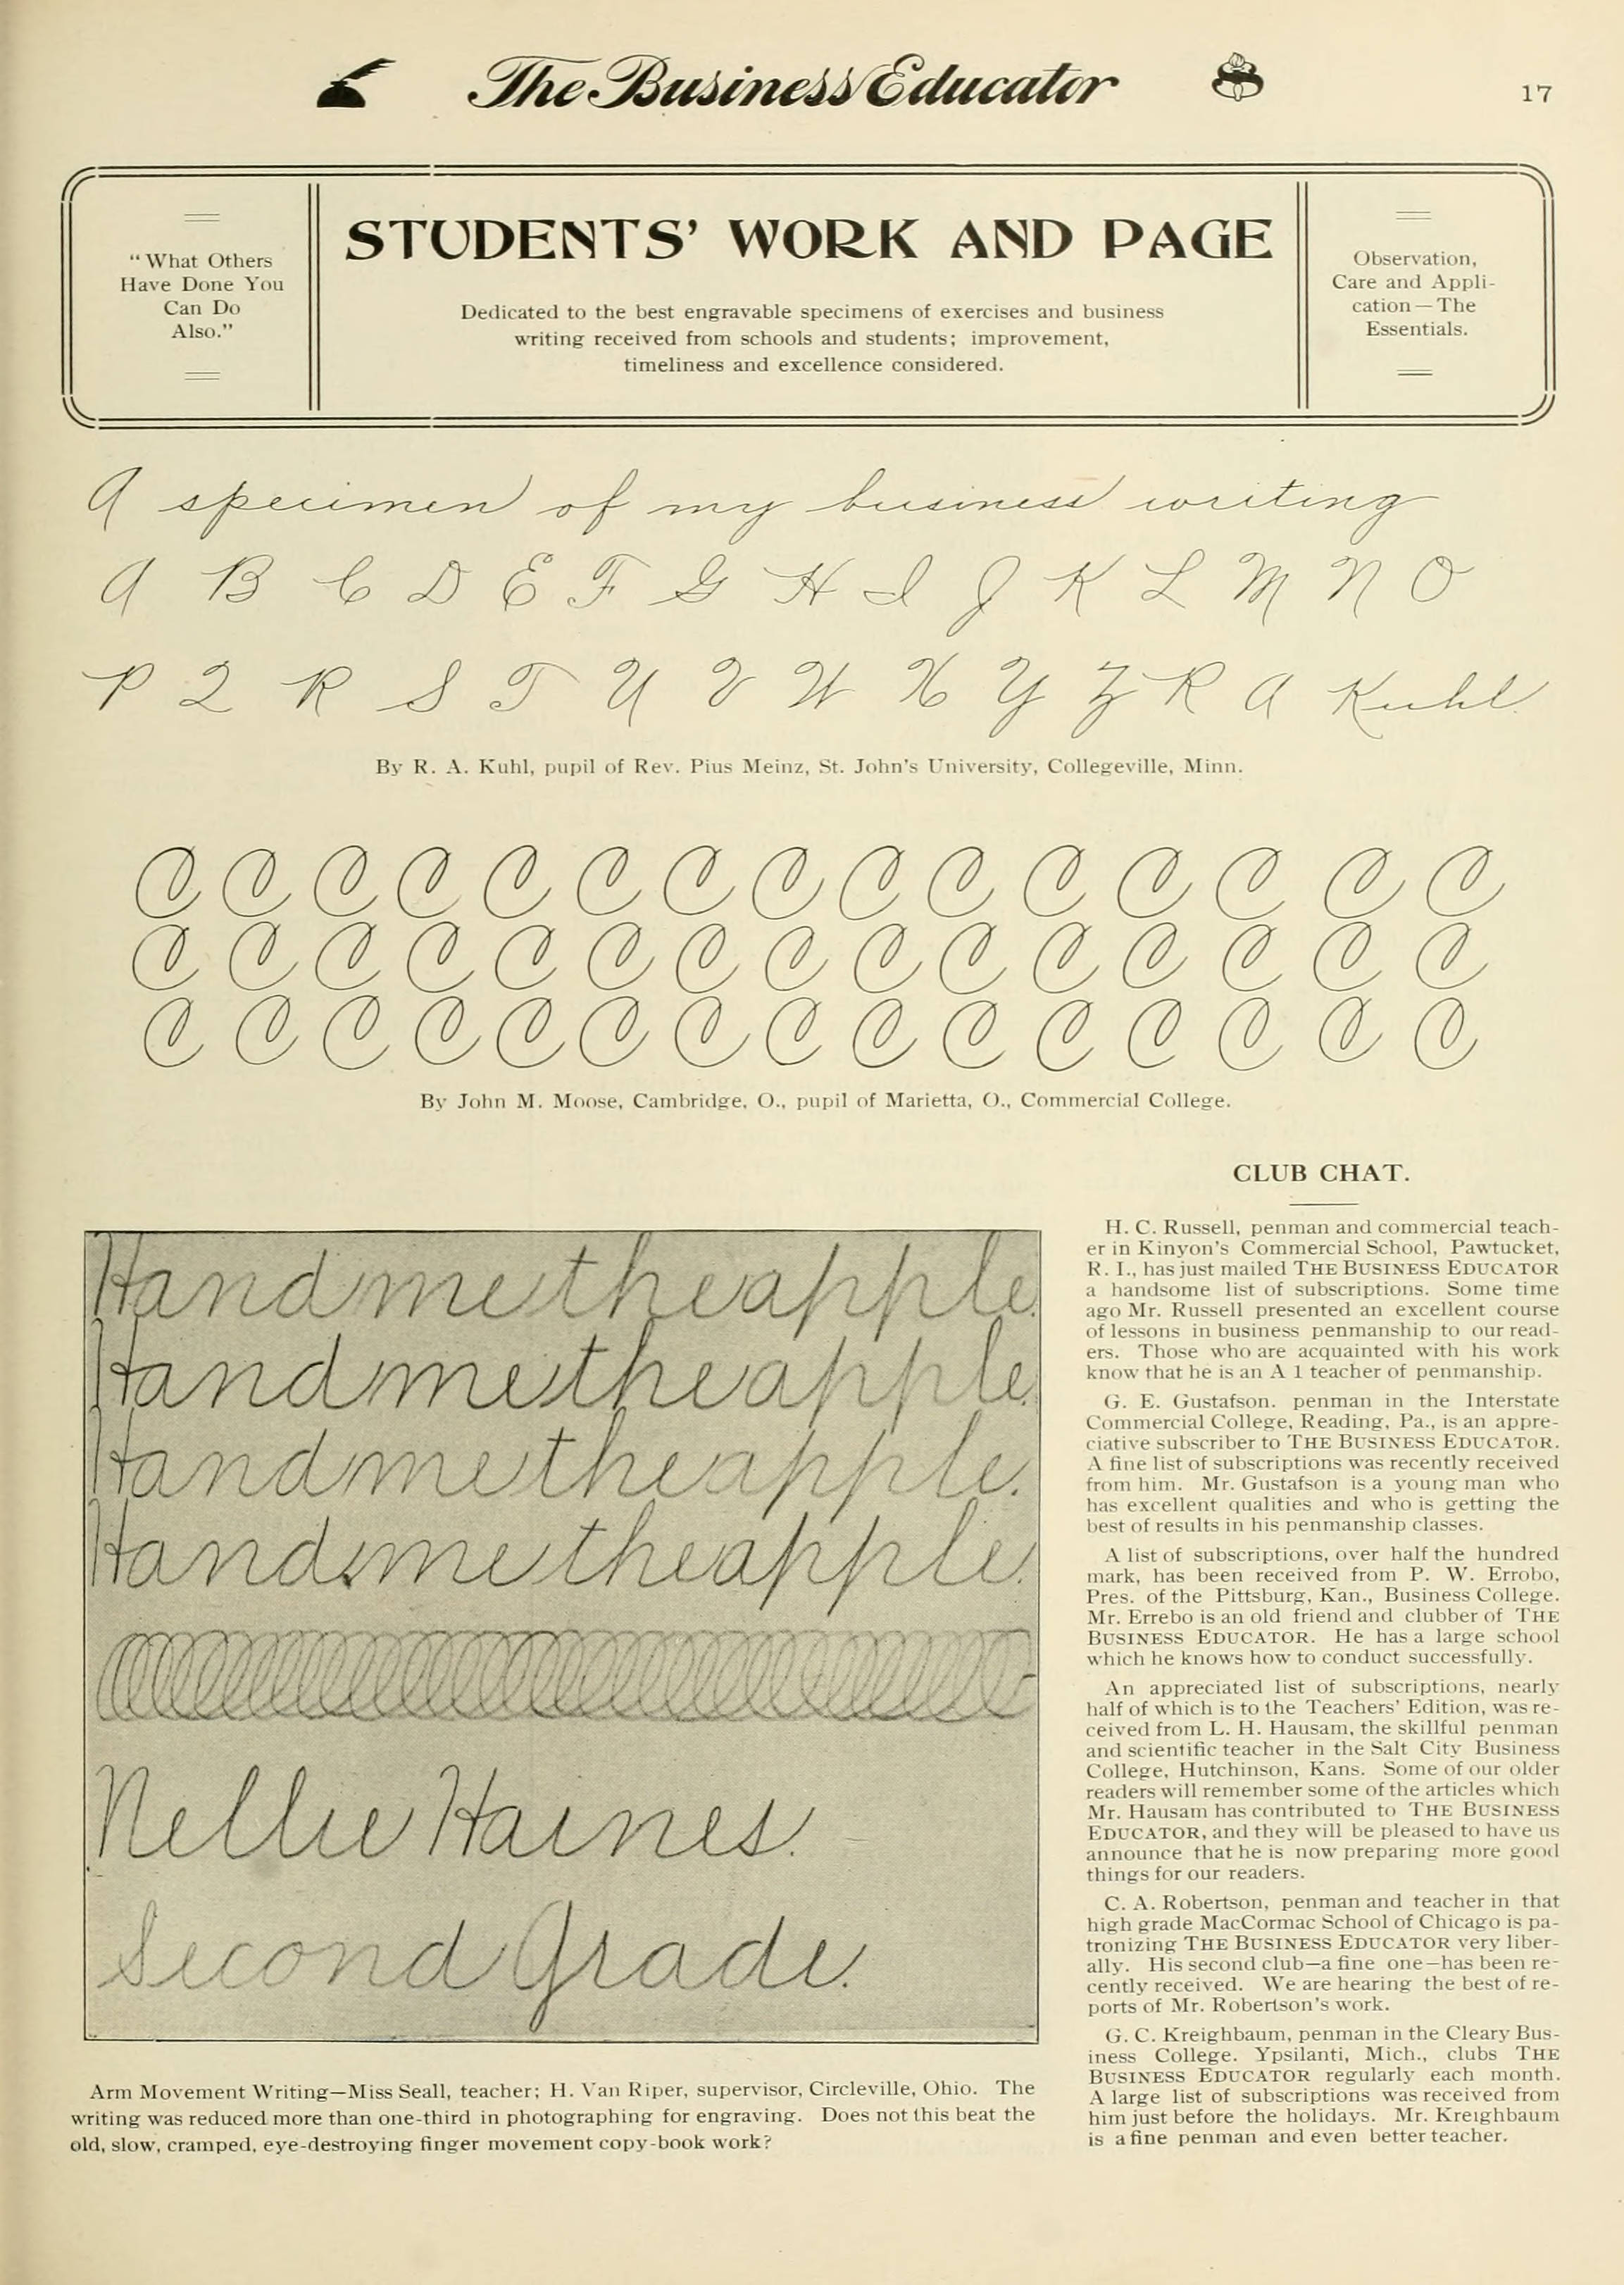 The Business Educator
17
"What Others
Have Done You
Can Do
Also."
STUDENTS' WORK AND PAGE
Dedicated to the best engravable specimens of exercises and business
writing received from schools and students; improvement,
timeliness and excellence considered.
Observation,
Care and Appli-
cation—The
Essentials.
A specimen of my business writing
A B C D E F G H I J K L M N O
P Q R S T U V W X Y Z R A Kuhl
By R. A. Kuhl, pupil of Rev. Pius Meinz, St. John's University, Collegeville, Minn.
C C C C C C C C C C C C C C C
C C C C C C C C C C C C C C C
C C C C C C C C C C C C C C C
By John M. Moose, Cambridge, O., pupil of Marietta, O., Commercial College.
Hand me the apple.
Hand me the apple.
Hand me the apple.
Hand me the apple.
Nellie Haines.
Second Grade.
Arm Movement Writing—Miss Seall, teacher; H. Van Riper, supervisor, Circleville, Ohio. The
writing was reduced more than one-third in photographing for engraving. Does not this beat the
old, slow, cramped, eye-destroying finger movement copy-book work?
CLUB CHAT.
H. C. Russell, penman and commercial teach-
er in Kinyon's Commercial School, Pawtucket,
R. I., has just mailed THE BUSINESS EDUCATOR
a handsome list of subscriptions. Some time
ago Mr. Russell presented an excellent course
of lessons in business penmanship to our read-
ers. Those who are acquainted with his work
know that he is an A 1 teacher of penmanship.
G. E. Gustafson. penman in the Interstate
Commercial College, Reading, Pa., is an appre-
ciative subscriber to THE BUSINESS EDUCATOR.
A fine list of subscriptions was recently received
from him. Mr. Gustafson is a young man who
has excellent qualities and who is getting the
best of results in his penmanship classes.
A list of subscriptions, over half the hundred
mark, has been received from P. W. Errobo,
Pres. of the Pittsburg, Kan., Business College.
Mr. Errebo is an old friend and clubber of THE
BUSINESS EDUCATOR. He has a large school
which he knows how to conduct successfully.
An appreciated list of subscriptions, nearly
half of which is to the Teachers' Edition, was re-
ceived from L. H. Hausam, the skillful penman
and scientific teacher in the Salt City Business
College, Hutchinson, Kans. Some of our older
readers will remember some of the articles which
Mr. Hausam has contributed to THE BUSINESS
EDUCATOR, and they will be pleased to have us
announce that he is now preparing more good
things for our readers.
C. A. Robertson, penman and teacher in that
high grade MacCormac School of Chicago is pa-
tronizing THE BUSINESS EDUCATOR very liber-
ally. His second club—a fine one—has been re-
cently received. We are hearing the best of re-
ports of Mr. Robertson's work.
G. C. Kreighbaum, penman in the Cleary Bus-
iness College. Ypsilanti, Mich., clubs THE
BUSINESS EDUCATOR regularly each month.
A large list of subscriptions was received from
him just before the holidays. Mr. Kreighbaum
is a fine penman and even better teacher.